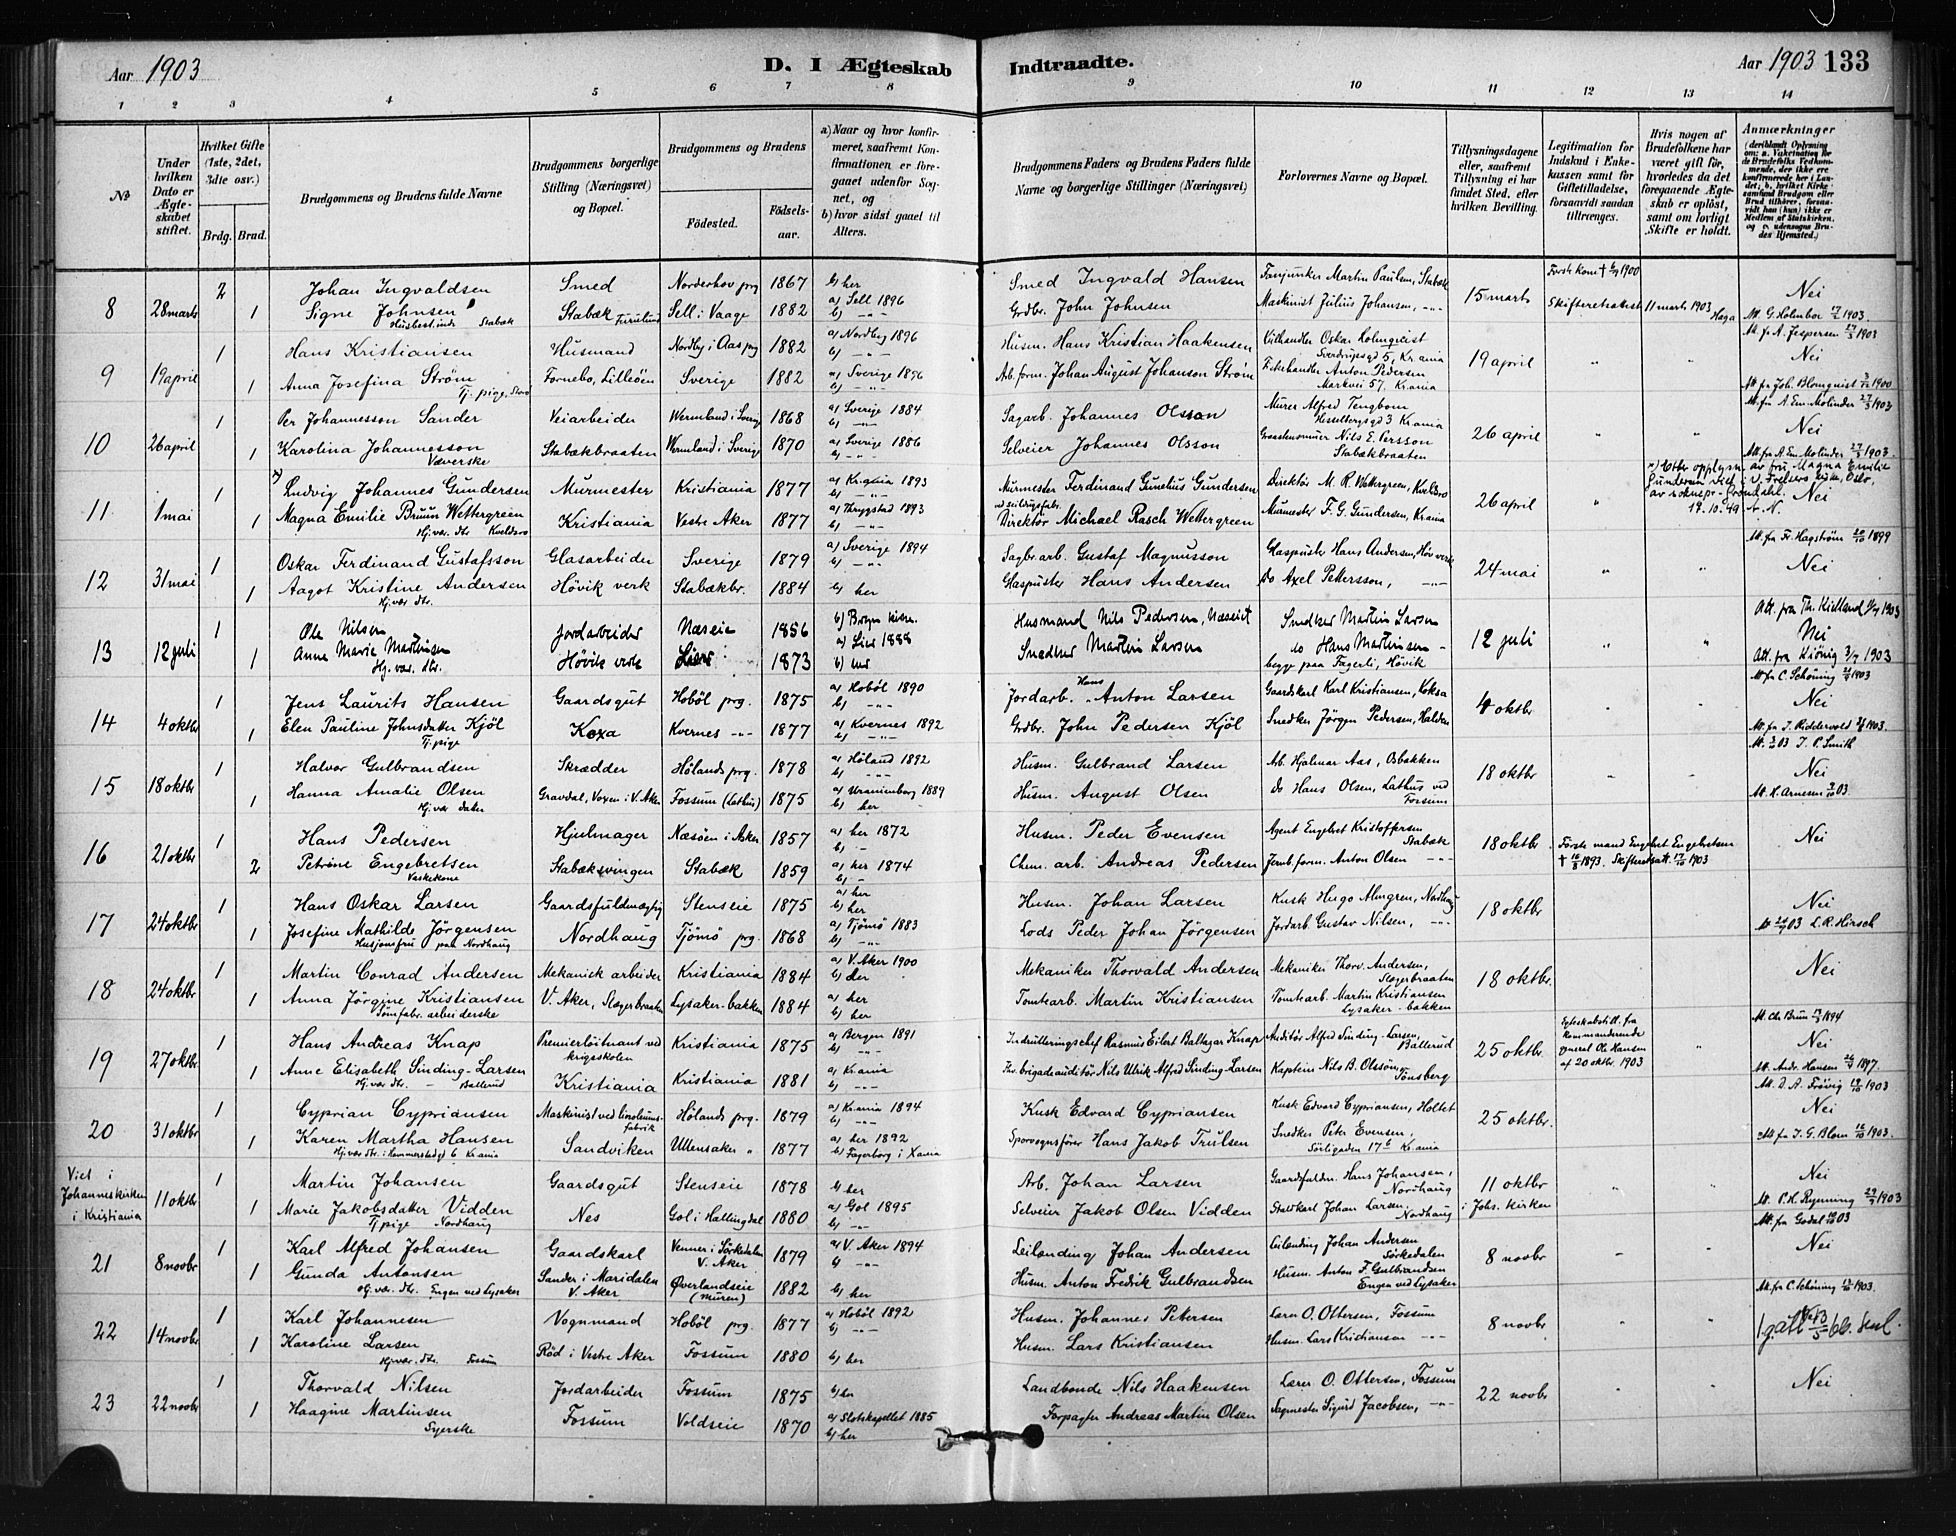 Aar 1903 D. I Ægteskab Indtraadte. Aar 1903 133
1 2 3 4 5 6 7 8 9 10 11 12 13 14
№
Under hvilken Dato er Ægteskabet stiftet.
Hvilket Gifte (1ste, 2det, 3die osv.)
Brdg. Brud.
Brudgommens og Brudens fulde Navne
Brudgommens borgerlige Stilling (Næringsvei) og Bopæl.
Brudgommens og Brudens
Fødested. Fødselsaar.
a) Naar og hvor konfirmeret, saafremt Konfirmationen er foregaaet udenfor Sognet, og
b) hvor sidst gaaet til Alters.
Brudgommens Faders og Brudens Faders fulde Navne og borgerlige Stillinger (Næringsvei)
Forlovernes Navne og Bopæl.
Tillysningsdagene eller, saafremt Tillysning ei har fundet Sted, efter hvilken Bevilling.
Legitimation for Indskud i Enkekassen samt for Giftetilladelse, forsaavidt saadan tiltrænges.
Hvis nogen af Brudefolkene har været gift før, hvorledes da det foregaaende Ægteskab er opløst, samt om lovligt Skifte er holdt.
Anmærkninger (deriblandt Oplysning om: a. Vakcination for de Brudefolks Vedkommende, der ikke ere konfirmerede her i Landet; b. hvilket Kirkesamfund Brudgom eller Brud tilhører, forsaavidt han (hun) ikke er Medlem af Statskirken, og c. udensogns Brudes Hjemsted.)
8 28 marts 2 Johan Ingvaldsen Smed Norderhov prg 1867 b) her Smed Ingvald Hansen Fanjunker Martin Paulsen, Stabæk 15 marts Første kone † 1900 Nei
1 Signe Johnsen Stabæk Furulund Sell i Vaage 1882 a) Sell 1896 b) -"- Grdbr. John Johnsen Maskinist Julius Johansen, -"- Skifteretsattest 11 marts 1903 Haga Att. G. Holmboe 1903
Husbest.inde Stabæk
9 19 april 1 Hans Kristiansen Husmand Nordby i Aas prg 1882 a) Nordby 1896 b) -"- Husm. Hans Kristian Haakensen Vilthandler Oskar Holmqvist 19 april " " Att. fr A. Jespersen 1903 Nei
Sverdrupsgd 5, Kr.ania
1 Anna Josefina Strøm Fornebo, Lilleöen Sverige 1882 a) Sverige 1896 b) -"- Arb. form. Johan August Johanson Strøm Fiskehandler Anton Pedersen Markvei 57, Kr.ania Att. fra Joh. Blomquist 1900
Tj. pige, Stord
10 26 april 1 Per Johannesson Sander Veiarbeider Wermland i Sverig 1868 a) Sverige 1884 b) -"- Sagarb. Johannes Olsson Murer Alfred Tengbom Hesselbergsgd 3 Kr.ania 26 april " " Att. fra A. Em. Molinder 1903 Nei
1 Karolina Johannesson Stabækbraaten Wermland i Sverig 1870 a) Sverige 1886 b) -"- Selveier Johannes Olsson Graastensmurer Nils E. Persson Stabækbraaten Att. fra A. Em. Molinder 1903
Væverske
11 1 mai 1 x) Ludvig Johannes Gundersen Murmester Kristiania 1877 a) Kr.ania 1893 b) -"- Murmester Ferdinand Gunelius Gundersen Direktør M. R. Wettergreen, Kveldsro 26 april "
1 Magna Emilie Bruun Wettergreen Kristiania Vestre Aker 1877 a) Thrygstad 1893 b) -"- Direktør Michael Rasch Wettergreen Murmester F. G. Gundersen, Kr.ania Nei
Hj.vær. dtr Kveldsro
x) Etter opplysn. av fru Magna Emilie Gundersen 19.10.49
12 31 mai 1 Oskar Ferdinand Gustafsson Glasarbeider Sverige 1879 a) Sverige 1894 b) -"- Sagbr.arb. Gustaf Magnusson Glaspuster Hans Andersen, Höv. verk 24 mai " " Att. fra Fr. Hagström 1899 Nei
1 Aagot Kristine Andersen Hövik verk Stabækbr. 1884 b) her Glaspuster Hans Andersen Do Axel Pettersson, -"-
Hj.vær. dtr.
13 12 juli 1 Ole Nilsen Jordarbeider Næseie 1856 Husmand Nils Pedersen, Næseiet Snedker Martin Larsen 12 juli " " Att. fra Th. Kielland 1903 Nei
1 Anne Marie Martinsen Hövik verk Lier 1873 a) Lier 1888 Snedker Martin Larsen do Hans Martinsen begge paa Fagerli, Hövik Att. fra Kiönig 3/7 1903
Hj. vær. dtr.
14 4 oktbr 1 Jens Laurits Hansen Gaardsgut Hoböl prg. 1875 a) Hoböl 1890 b) -"- Jordarb. Hans Anton Larsen Gaardskarl Karl Kristiansen, Koksa 4 oktbr " " Att. fra C. Schöning 1903 Nei
1 Elen Pauline Johnsdatter Kjöl Koxa Kvernes -"- 1877 a) Kvernes 1892 b) -"- Grdbr. John Pedersen Kjöl Snedker Jörgen Pedersen, Halden Att. fra J. Riddervold 1903.
Tj. pige
15 18 oktbr 1 Halvor Gulbrandsen Skrædder Hölands prg. 1878 a) Höland 1892 b) -"- Husm. Gulbrand Larsen Arb. Hjalmar Aas, Osbakken 18 oktbr " " Att. 03 T. P. Smith Nei
1 Hanna Amalie Olsen Gravdal, Voxen i V. Aker Fossum (Lathus) 1875 a) Uranienborg 1889 b) her Husm. August Olsen do Hans Olsen, Lathus ved Fossum Att. K. Arnesen 03
Hj.vær. datter
16 21 oktbr 1 Hans Pedersen Hjulmager Næsøen i Asker 1857 a) her 1872 b) - Husm. Peder Evensen Agent Engebret Kristoffersen Stabæk 18 oktbr Første mand Engebret Engebretsen Nei
2 Petrine Engebretsen Stabæksvingen Stabæk 1859 a) her 1874 b) - Chem. arb. Andreas Pedersen Jernb.form. Anton Olsen -"- † 1893. Skifteretsatt. 17/10 1903
Vaskekone
17 24 oktbr 1 Hans Oskar Larsen Gaardsfuldmægtig Stenseie 1875 a) her b) her Husm. Johan Larsen Kusk Hugo Almgren, Nordhaug 18 oktbr Nei
1 Josefine Mathilde Jörgensen Nordhaug Tjömö prg. 1868 a) Tjömö 1883 b) -"- Lods Peder Johan Jörgensen Jordarb. Gustav Nilsen, -"- Att 03 L. R. Hirsch
Husjomfru paa Nordhaug
18 24 oktbr 1 Martin Conrad Andersen Mekanisk arbeider Kristiania 1884 a) V. Aker 1900 b) der Mekaniker Thorvald Andersen Mekaniker Thorv. Andersen, Slegerbraaten 18 oktbr. Nei
1 Anna Jörgine Kristiansen V. Aker, Slegerbraaten Lysaker-bakken 1884 a) her b) her Tomtearb. Martin Kristiansen Tomtearb. Martin Kristiansen Lysaker-bakken
Sömfabr. arbeiderske
19 27 oktbr 1 Hans Andreas Knap Premierlöitnant ved krigsskolen Kristiania 1875 a) Bergen 1891 b) -"- Indrulleringschef Rasmus Eilert Baltazar Knap Auditör Alfred Sinding-Larsen, Ballerud 25 oktbr Egteskabstill. fra kommanderende general Ole Hansen af 20 oktbr. 1903 " Att. Chr. Brun 1894 Nei
1 Anne Elisabeth Sinding-Larsen Kristiania Kristiania 1881 a) Kr.ania b) -"- Fhv. brigadeauditör Nils Ulrik Alfred Sinding-Larsen Kaptein Nils B. Olssön, Tönsberg Att. Andr. Hansen 1897.
Hj.vær. dtr. - Ballerud
20 31 oktbr 1 Cyprian Cypriansen Maskinist ved linoleumsfabrik Hölands prg. 1879 a) Kr.ania 1894 b) -"- Kusk Edvard Cypriansen Kusk Edvard Cypriansen, Holtet 25 oktbr. Att. D. A. Frövig 1903 Nei
1 Karen Martha Hansen Sandviken Ullensaker " 1877 a) her 1892 b) Fagerborg i X.ania Sporvognsförer Hans Jakob Trulsen Snedker Peter Evensen, Sörligaden 17 Kr.ania Att fra J. G. Blom 1903.
Hj.vær. dtr. i Hammerstadgd 6 Kr.ania
Viet i Johanneskirken i Kristiania 11 oktbr 1 Martin Johansen Gaardsgut Stenseie 1878 b) her Arb. Johan Larsen Gaardsfuldm. Hans Johansen, Nordhaug 11 oktbr i Johs. kirken " " Nei
1 Marie Jakobsdatter Vidden Nes Gol i Hallingdal 1880 a) Gol 1895 b) -"- Selveier Jakob Olsen Vidden Staldkarl Johan Larsen, Nordhaug Att. P. H. Rynning 1903
Tj.pige Nordhaug
21 8 novbr 1 Karl Alfred Johansen Gaardskarl Venner i Sörkedalen V. Aker 1879 a) V. Aker 1894 b) -"- Leilending Johan Andersen Leilending Johan Andersen Sörkedalen 8 novbr " " Att. fra Godal 03 Nei
1 Gunda Antonsen Sander i Maridalen V. Aker Øverlandseie (Muren) 1882 b) her Husm. Anton Fredrik Gulbrandsen Husm. Anton F. Gulbrandsen Engen ved Lysaker
Hj.vær. dtr. Engen ved Lysaker
22 14 novbr 1 Karl Johannesen Vognmand Hoböl prg. 1877 a) Hoböl 1892 b) -"- Husm. Johannes Petersen Lærer O. Ottersen, Fossum 8 novbr " " Att. fra C. Schöning 1903.
1 Karoline Larsen Röd i Vestre Aker Fossum 1880 b) her Husm. Lars Kristiansen Husm. Lars Kristiansen -"-
Hj.vær. dtr. Fossum
23 22 novbr 1 Thorvald Nilsen Jordarbeider Fossum 1875 b) her Landbonde Nils Haakensen Lærer O. Ottersen, Fossum 22 novbr " " Nei
1 Haagine Martinsen Fossum Voldseie 1870 a) Slotskapellet 1885 b) her Forpagter Andreas Martin Olsen Sagmester Sigurd Jacobsen, -"-
Syerske